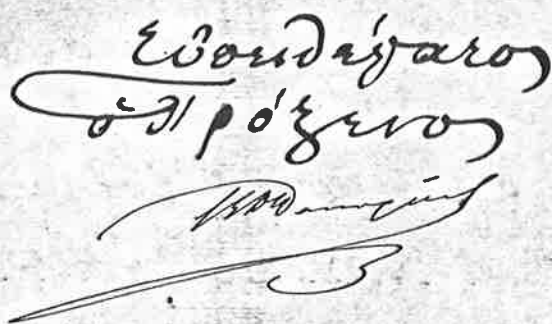 εὐπειθέϛατος
ὁ Πρόξενος